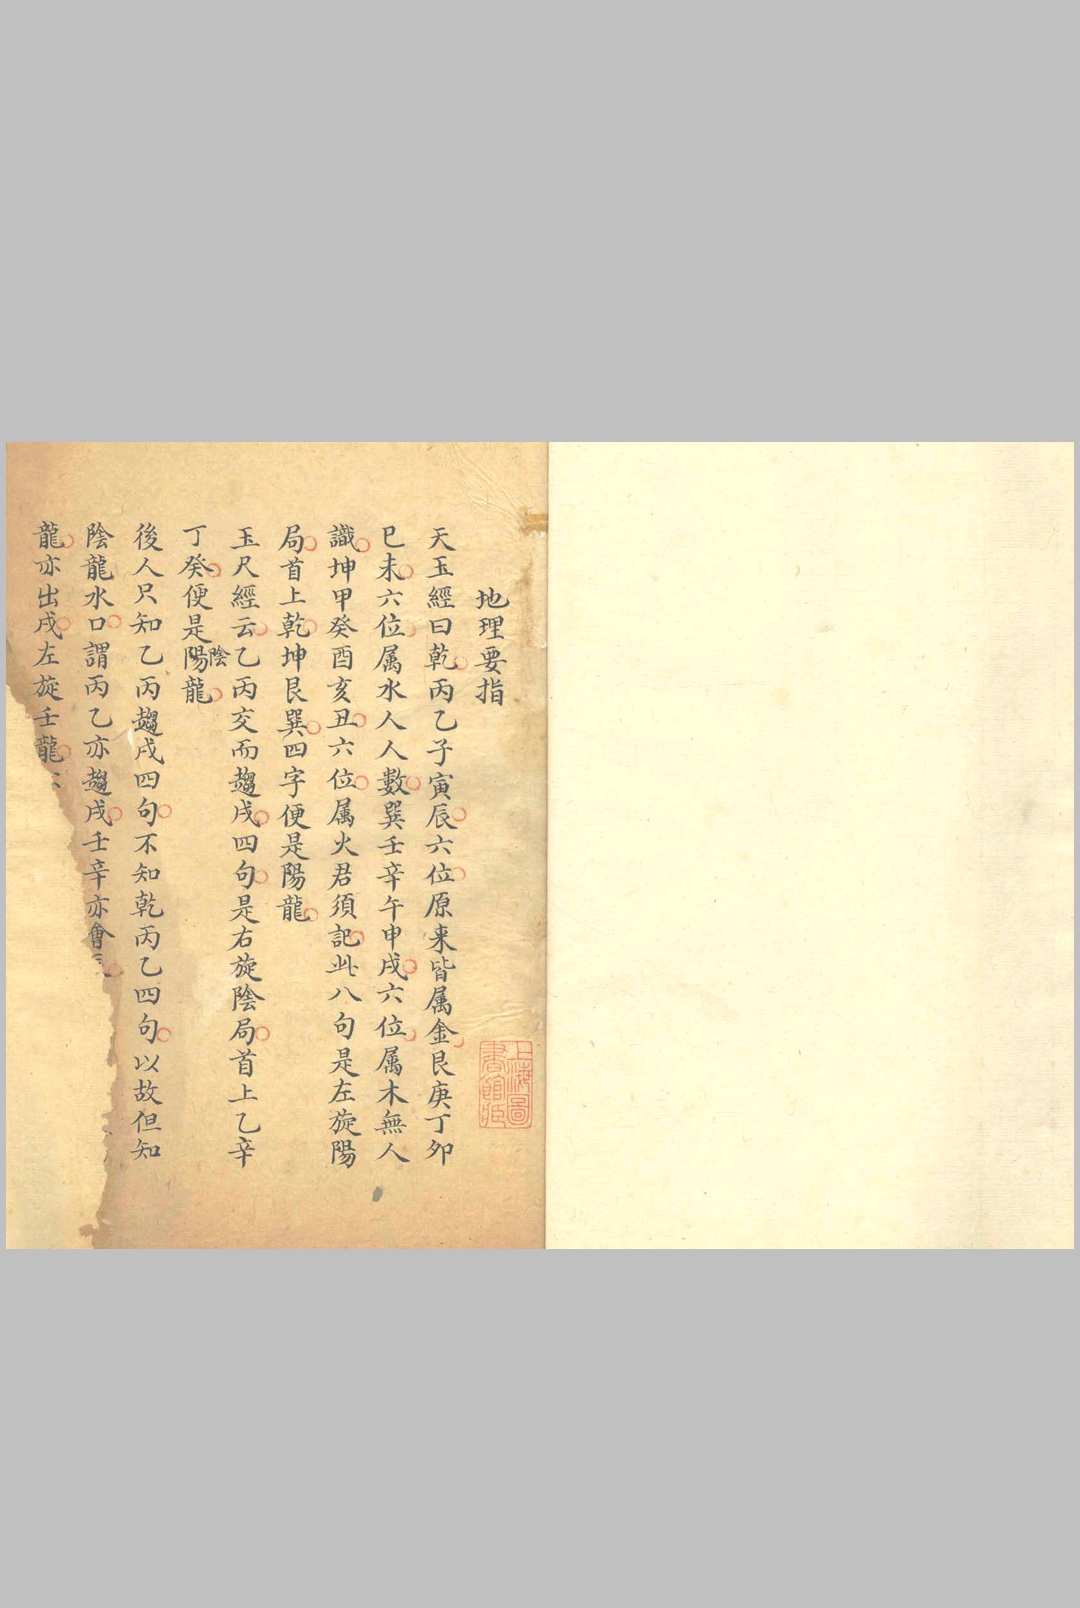 地理要指
天玉經曰乾丙乙子寅辰六位原来皆属金艮庚丁卯
巳未六位属水人人數巽壬辛午申戌六位属木無人
識坤甲癸酉亥丑六位属火君須記此八句是左旋陽
局首上乾坤艮巽四字便是陽龍
玉尺經云乙丙交而趨戌四句是右旋陰局首上乙辛
丁癸便是陽陰龍
後人只知乙丙趨戌四句不知乾丙乙四句以故但知
陰龍水口謂丙乙亦趨戌壬辛亦會
龍亦出戌左旋壬龍
上海圖
書館藏